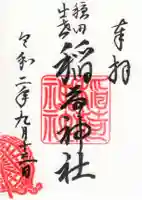 奉拝
種田
出世
稲荷神社
令和二年九月十三日